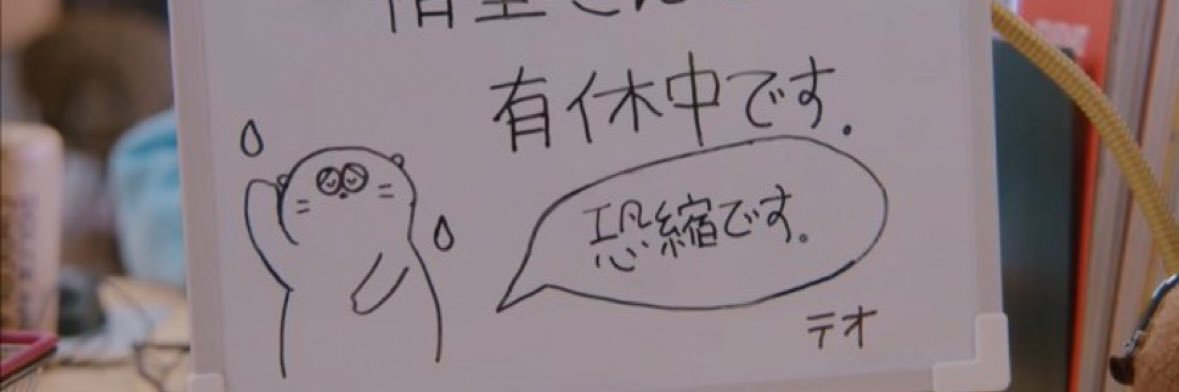 有休中です.
恐縮です。
テオ